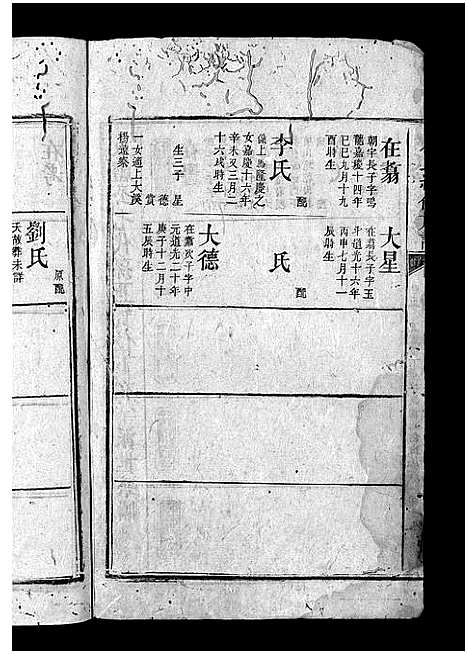 在翥
朝宇長子字鳴
龍嘉慶十四年
己巳九月十九
酉時生
李氏
配
儀上馬隆慶之
女嘉慶十六年
辛未又三月二
十六戌時生
生三子
星
德
賁
一女適上大溪
楊通榮
大星
在翥長子字玉
斗道光十六年
丙申七月十一
辰時生
氏
配
大德
在翥次子字中
元道光二十年
庚子十二月十
五辰時生
劉氏
原配
夭故葬未詳